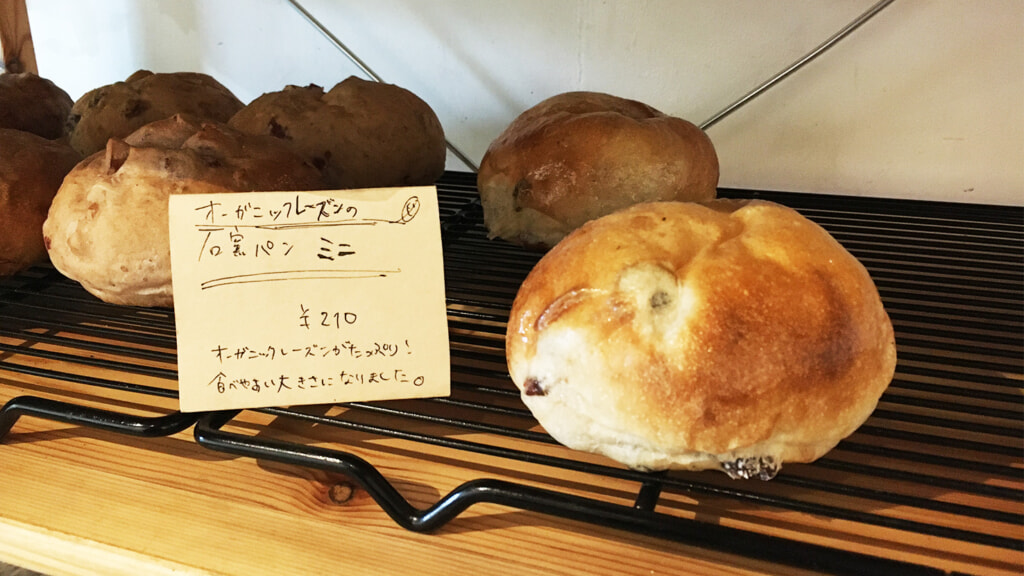 オーガニックレーズンの
石窯パン ミニ
¥210
オーガニックレーズンがたっぷり!
食べやすい大きさになりました。